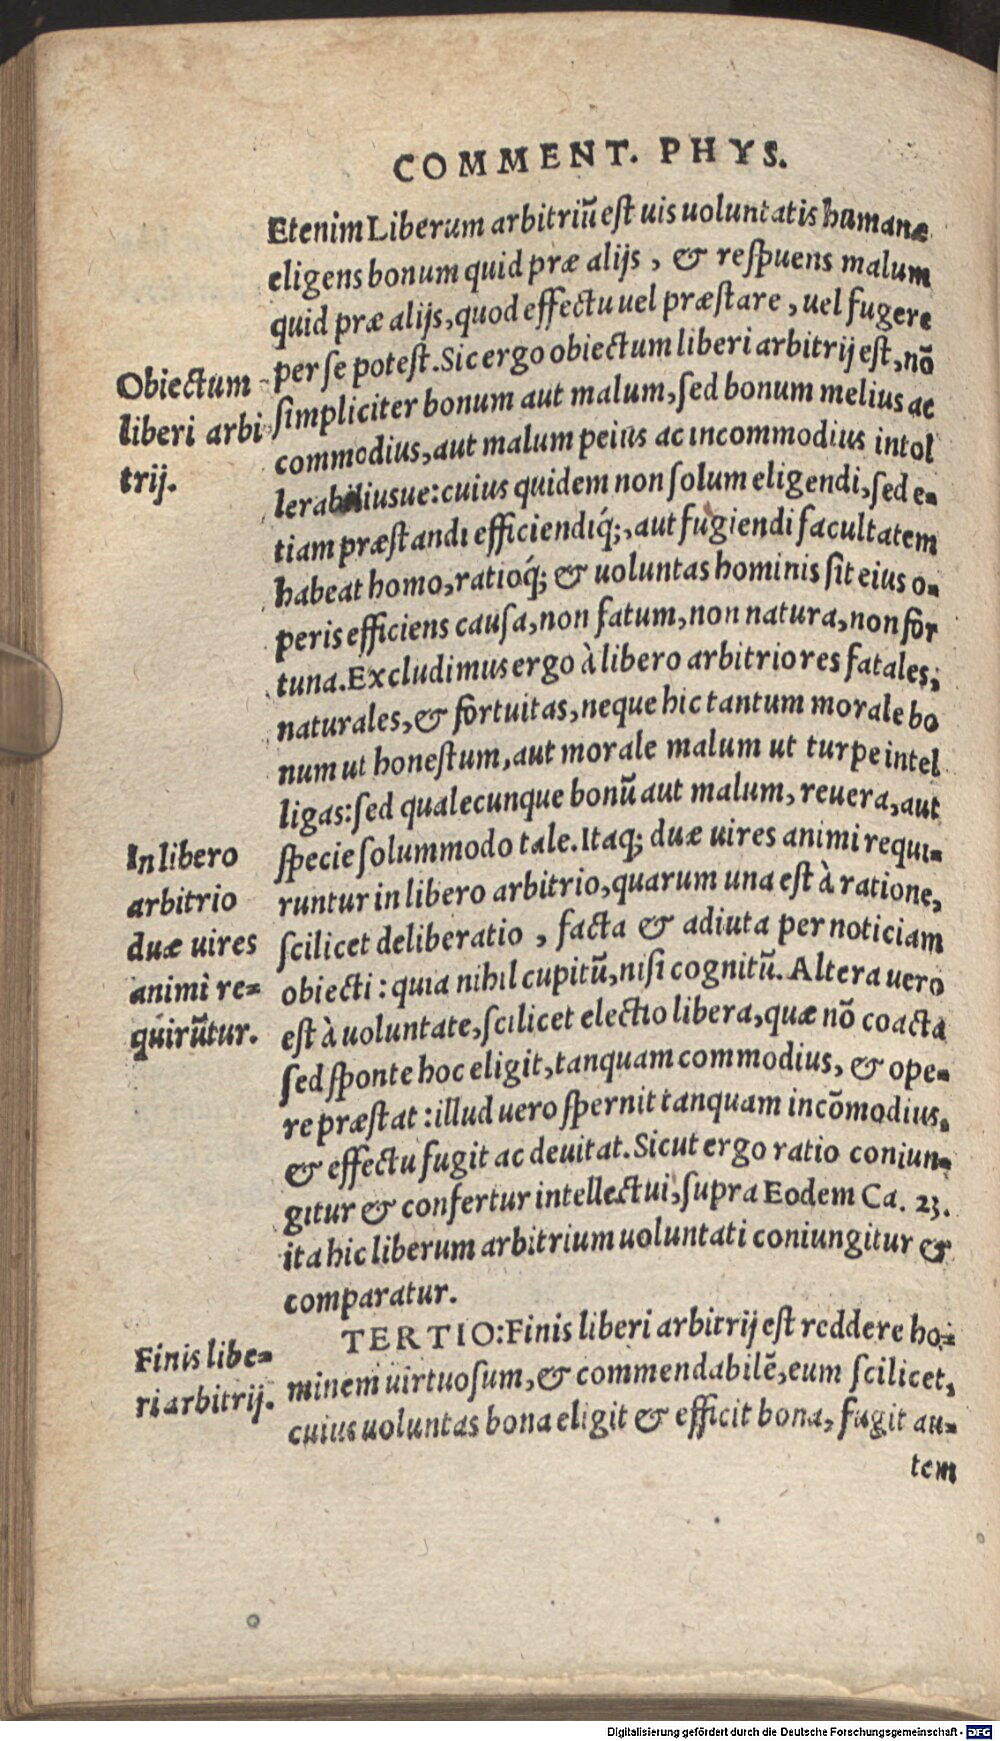 COMMENT. PHYS.
Etenim Liberum arbitriũ eſt uis uoluntatis humanæ
eligens bonum quid præ alijs, & reſpuens malum
quid præ alijs, quod effectu uel præſtare, uel fugere
per ſe poteſt. Sic ergo obiectum liberi arbitrij eſt, nõ
ſimpliciter bonum aut malum, ſed bonum melius ac
commodius, aut malum peius ac incommodius intol
lerabiliusue: cuius quidem non ſolum eligendi, ſed e-
tiam præſtandi efficiendiq́;, aut fugiendi facultatem
habeat homo, ratioq́; & uoluntas hominis ſit eius o-
peris efficiens cauſa, non fatum, non natura, non for
tuna. Excludimus ergo à libero arbitrio res fatales,
naturales, & fortuitas, neque hic tantum morale bo
num ut honeſtum, aut morale malum ut turpe intel
ligas: ſed qualecunque bonũ aut malum, reuera, aut
ſpecie ſolummodo tale. Itaq; duæ uires animi requi-
runtur in libero arbitrio, quarum una eſt à ratione,
ſcilicet deliberatio, facta & adiuta per noticiam
obiecti: quia nihil cupitũ, niſi cognitũ. Altera uero
eſt à uoluntate, ſcilicet electio libera, quæ nõ coacta
ſed ſponte hoc eligit, tanquam commodius, & ope-
re præſtat: illud uero ſpernit tanquam incõmodius,
& effectu fugit ac deuitat. Sicut ergo ratio coniun-
gitur & confertur intellectui, ſupra Eodem Ca. 23.
ita hic liberum arbitrium uoluntati coniungitur &
comparatur.
TERTIO: Finis liberi arbitrij eſt reddere ho-
minem uirtuoſum, & commendabilẽ, eum ſcilicet,
cuius uoluntas bona eligit & efficit bona, fugit au-
tem
Obiectum
liberi arbi
trij.
In libero
arbitrio
duæ uires
animi re-
quirũtur.
Finis libe-
ri arbitrij.
Digitalisierung gefördert durch die Deutsche Forschungsgemeinschaft - DFG